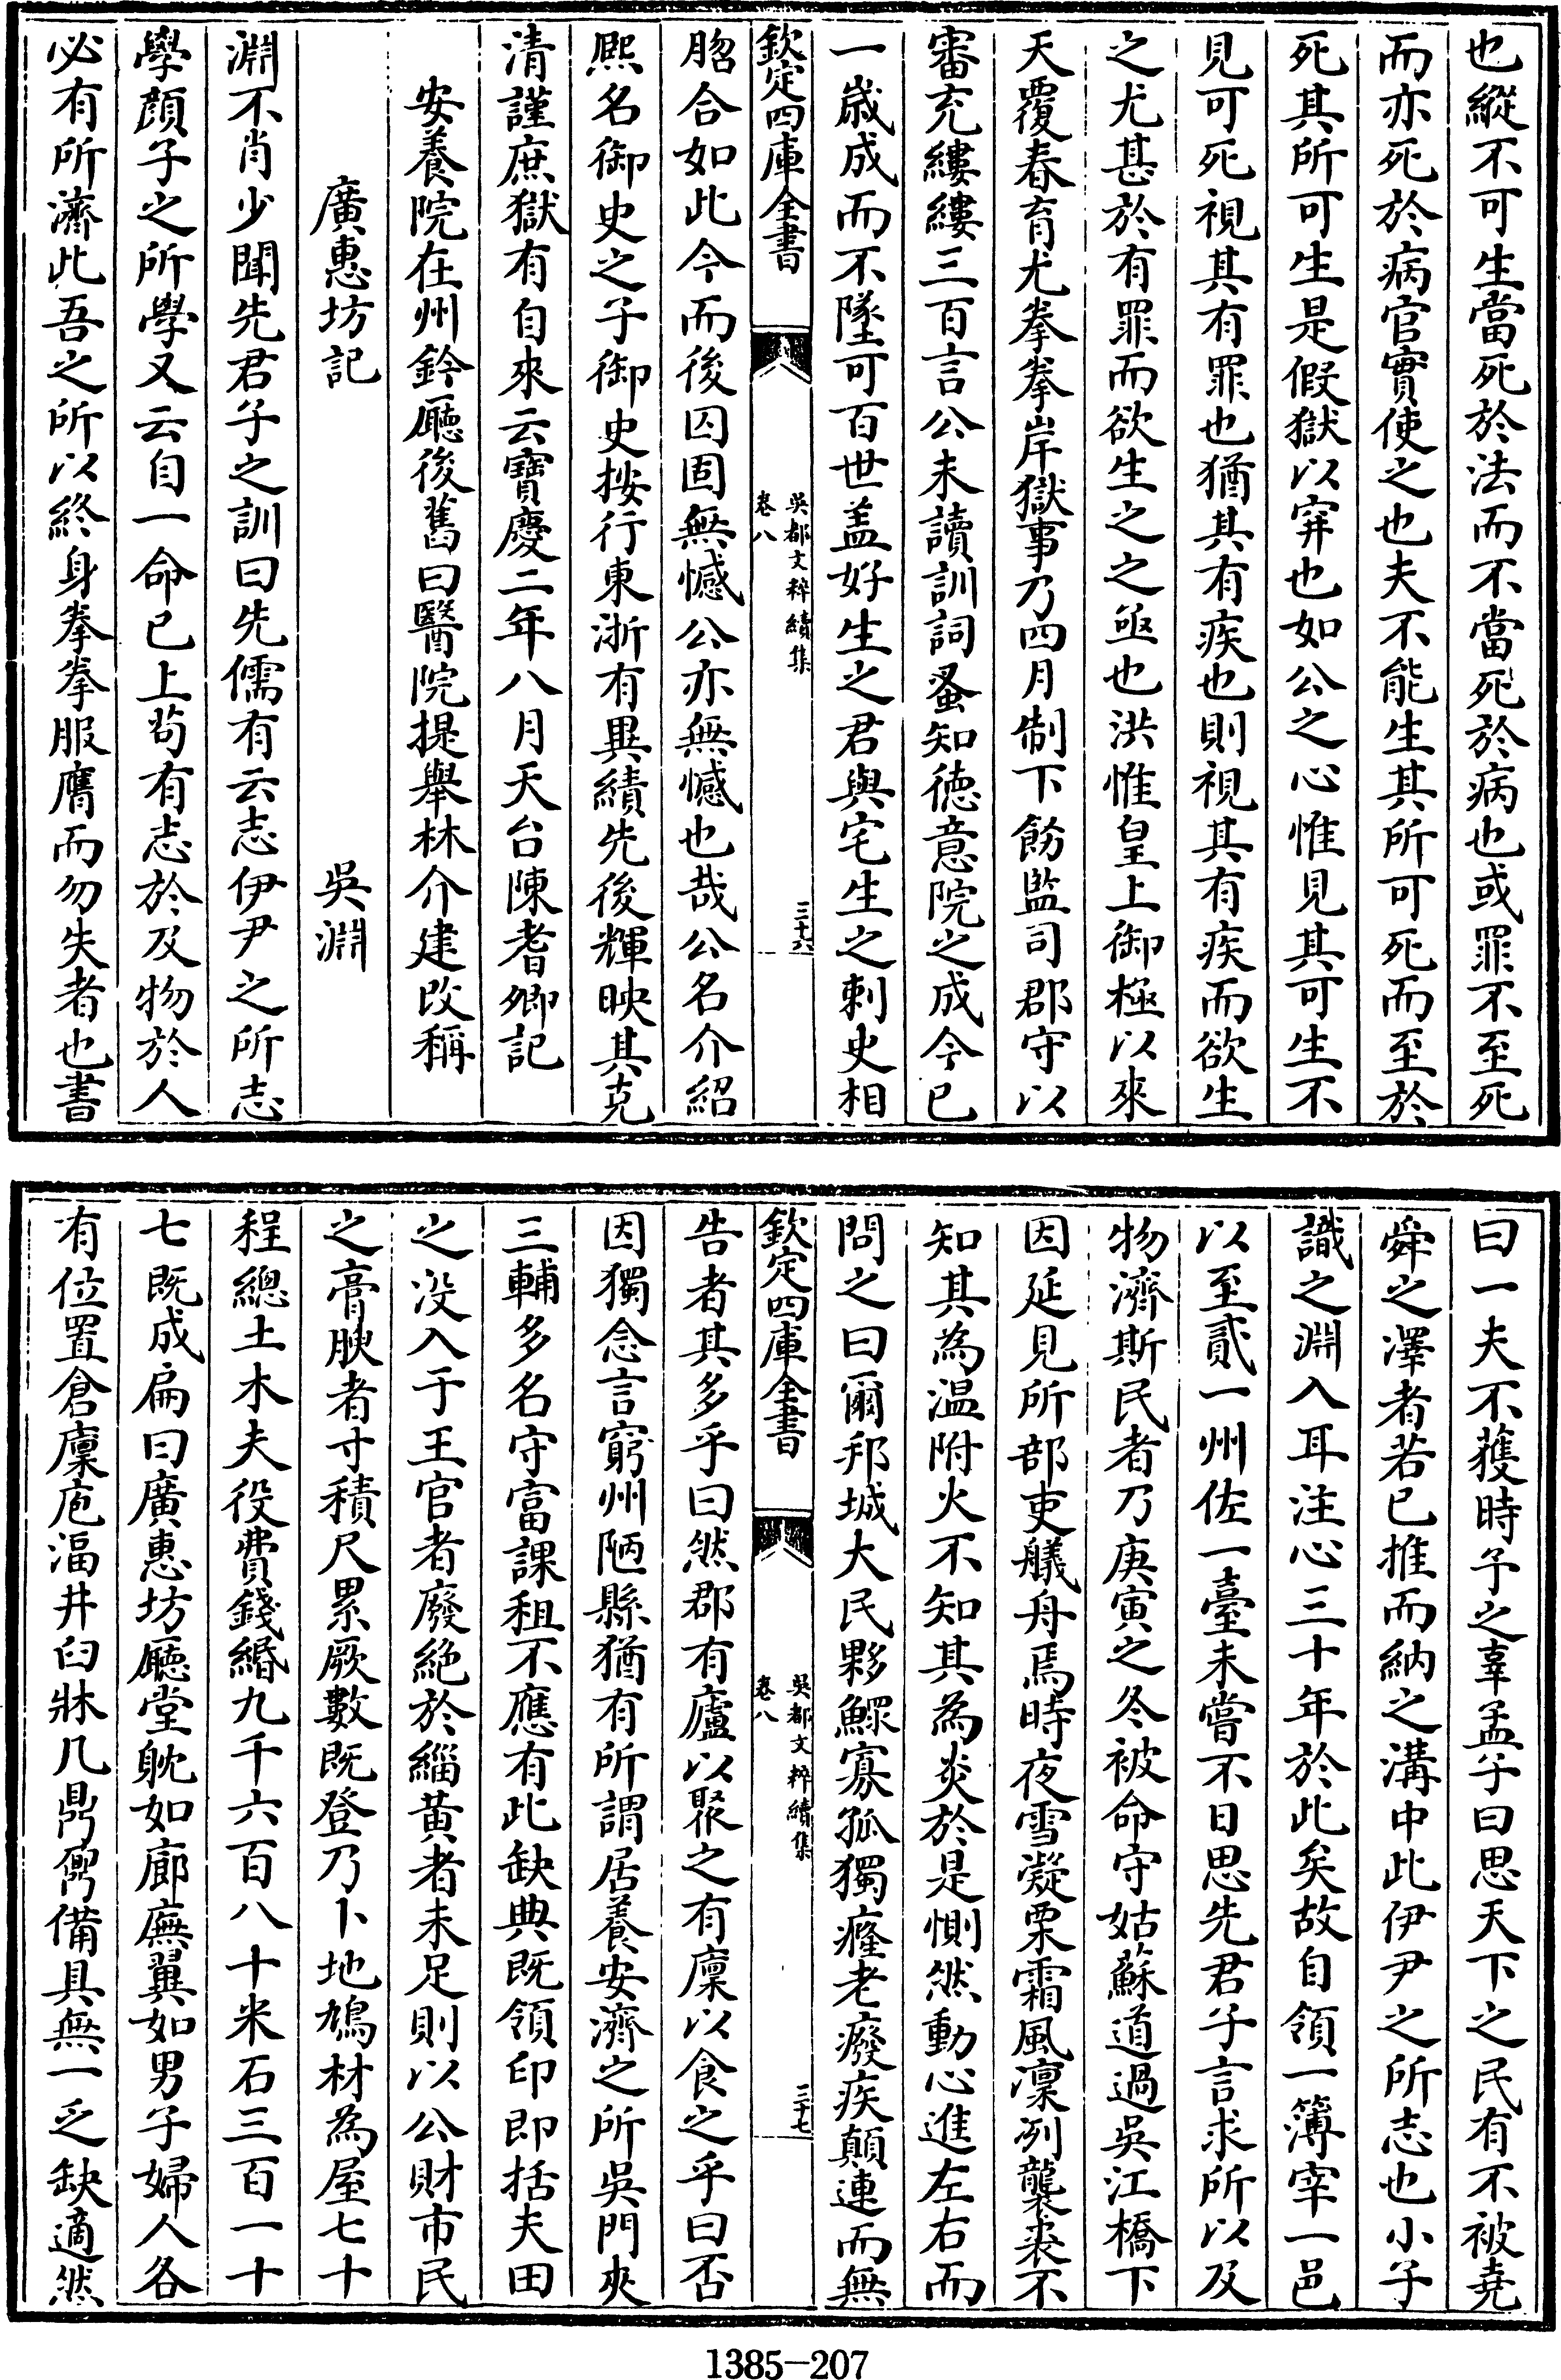 也縱不可生當死於法而不當死於病也或罪不至死
而亦死於病官實使之也夫不能生其所可死而至於
死其所可生是假獄以穽也如公之心惟見其可生不
見可死視其有罪也猶其有疾也則視其有疾而欲生
之尤甚於有罪而欲生之之亟也洪惟皇上御極以來
天覆春育尤拳拳岸獄事乃四月制下飭監司郡守以
審克縷縷三百言公未讀訓詞蚤知德意院之成今已
一歲成而不墜可百世盖好生之君與宅生之刺史相
欽定四庫全書
吳都文粹續集
卷八
三十六
脗合如此今而後囚固無憾公亦無憾也哉公名介紹
熙名御史之子御史按行東浙有異績先後輝映其克
清謹庶獄有自來云寶慶二年八月天台陳耆卿記
安養院在州鈐廳後舊曰醫院提舉林介建改稱
廣惠坊記
吳淵
淵不肖少聞先君子之訓曰先儒有云志伊尹之所志
學顔子之所學又云自一命已上苟有志於及物於人
必有所濟此吾之所以終身拳拳服膺而勿失者也書
曰一夫不獲時予之辜孟子曰思天下之民有不被堯
舜之澤者若已推而納之溝中此伊尹之所志也小子
識之淵入耳注心三十年於此矣故自領一簿宰一邑
以至貳一州佐一臺未嘗不日思先君子言求所以及
物濟斯民者乃庚寅之冬被命守姑蘇道過吳江橋下
因延見所部吏艤舟焉時夜雪凝栗霜風凜冽襲裘不
知其為温附火不知其為炎於是惻然動心進左右而
問之曰爾邦城大民夥鰥寡孤獨癃老癈疾顛連而無
欽定四庫全書
吳都文粹續集
卷八
三十七
告者其多乎曰然郡有廬以聚之有廩以食之乎曰否
因獨念言窮州陋縣猶有所謂居養安濟之所吳門夾
三輔多名守富課租不應有此缺典既領印即括夫田
之没入于王官者廢絶於緇黄者未足則以公財市民
之膏腴者寸積尺累厥數既登乃卜地鳩材為屋七十
程總土木夫役費錢緡九千六百八十米石三百一十
七既成扁曰廣惠坊廳堂躭如廊廡翼如男子婦人各
有位置倉廩庖湢井臼牀几鼎鬲備具無一乏缺適然
1385-207